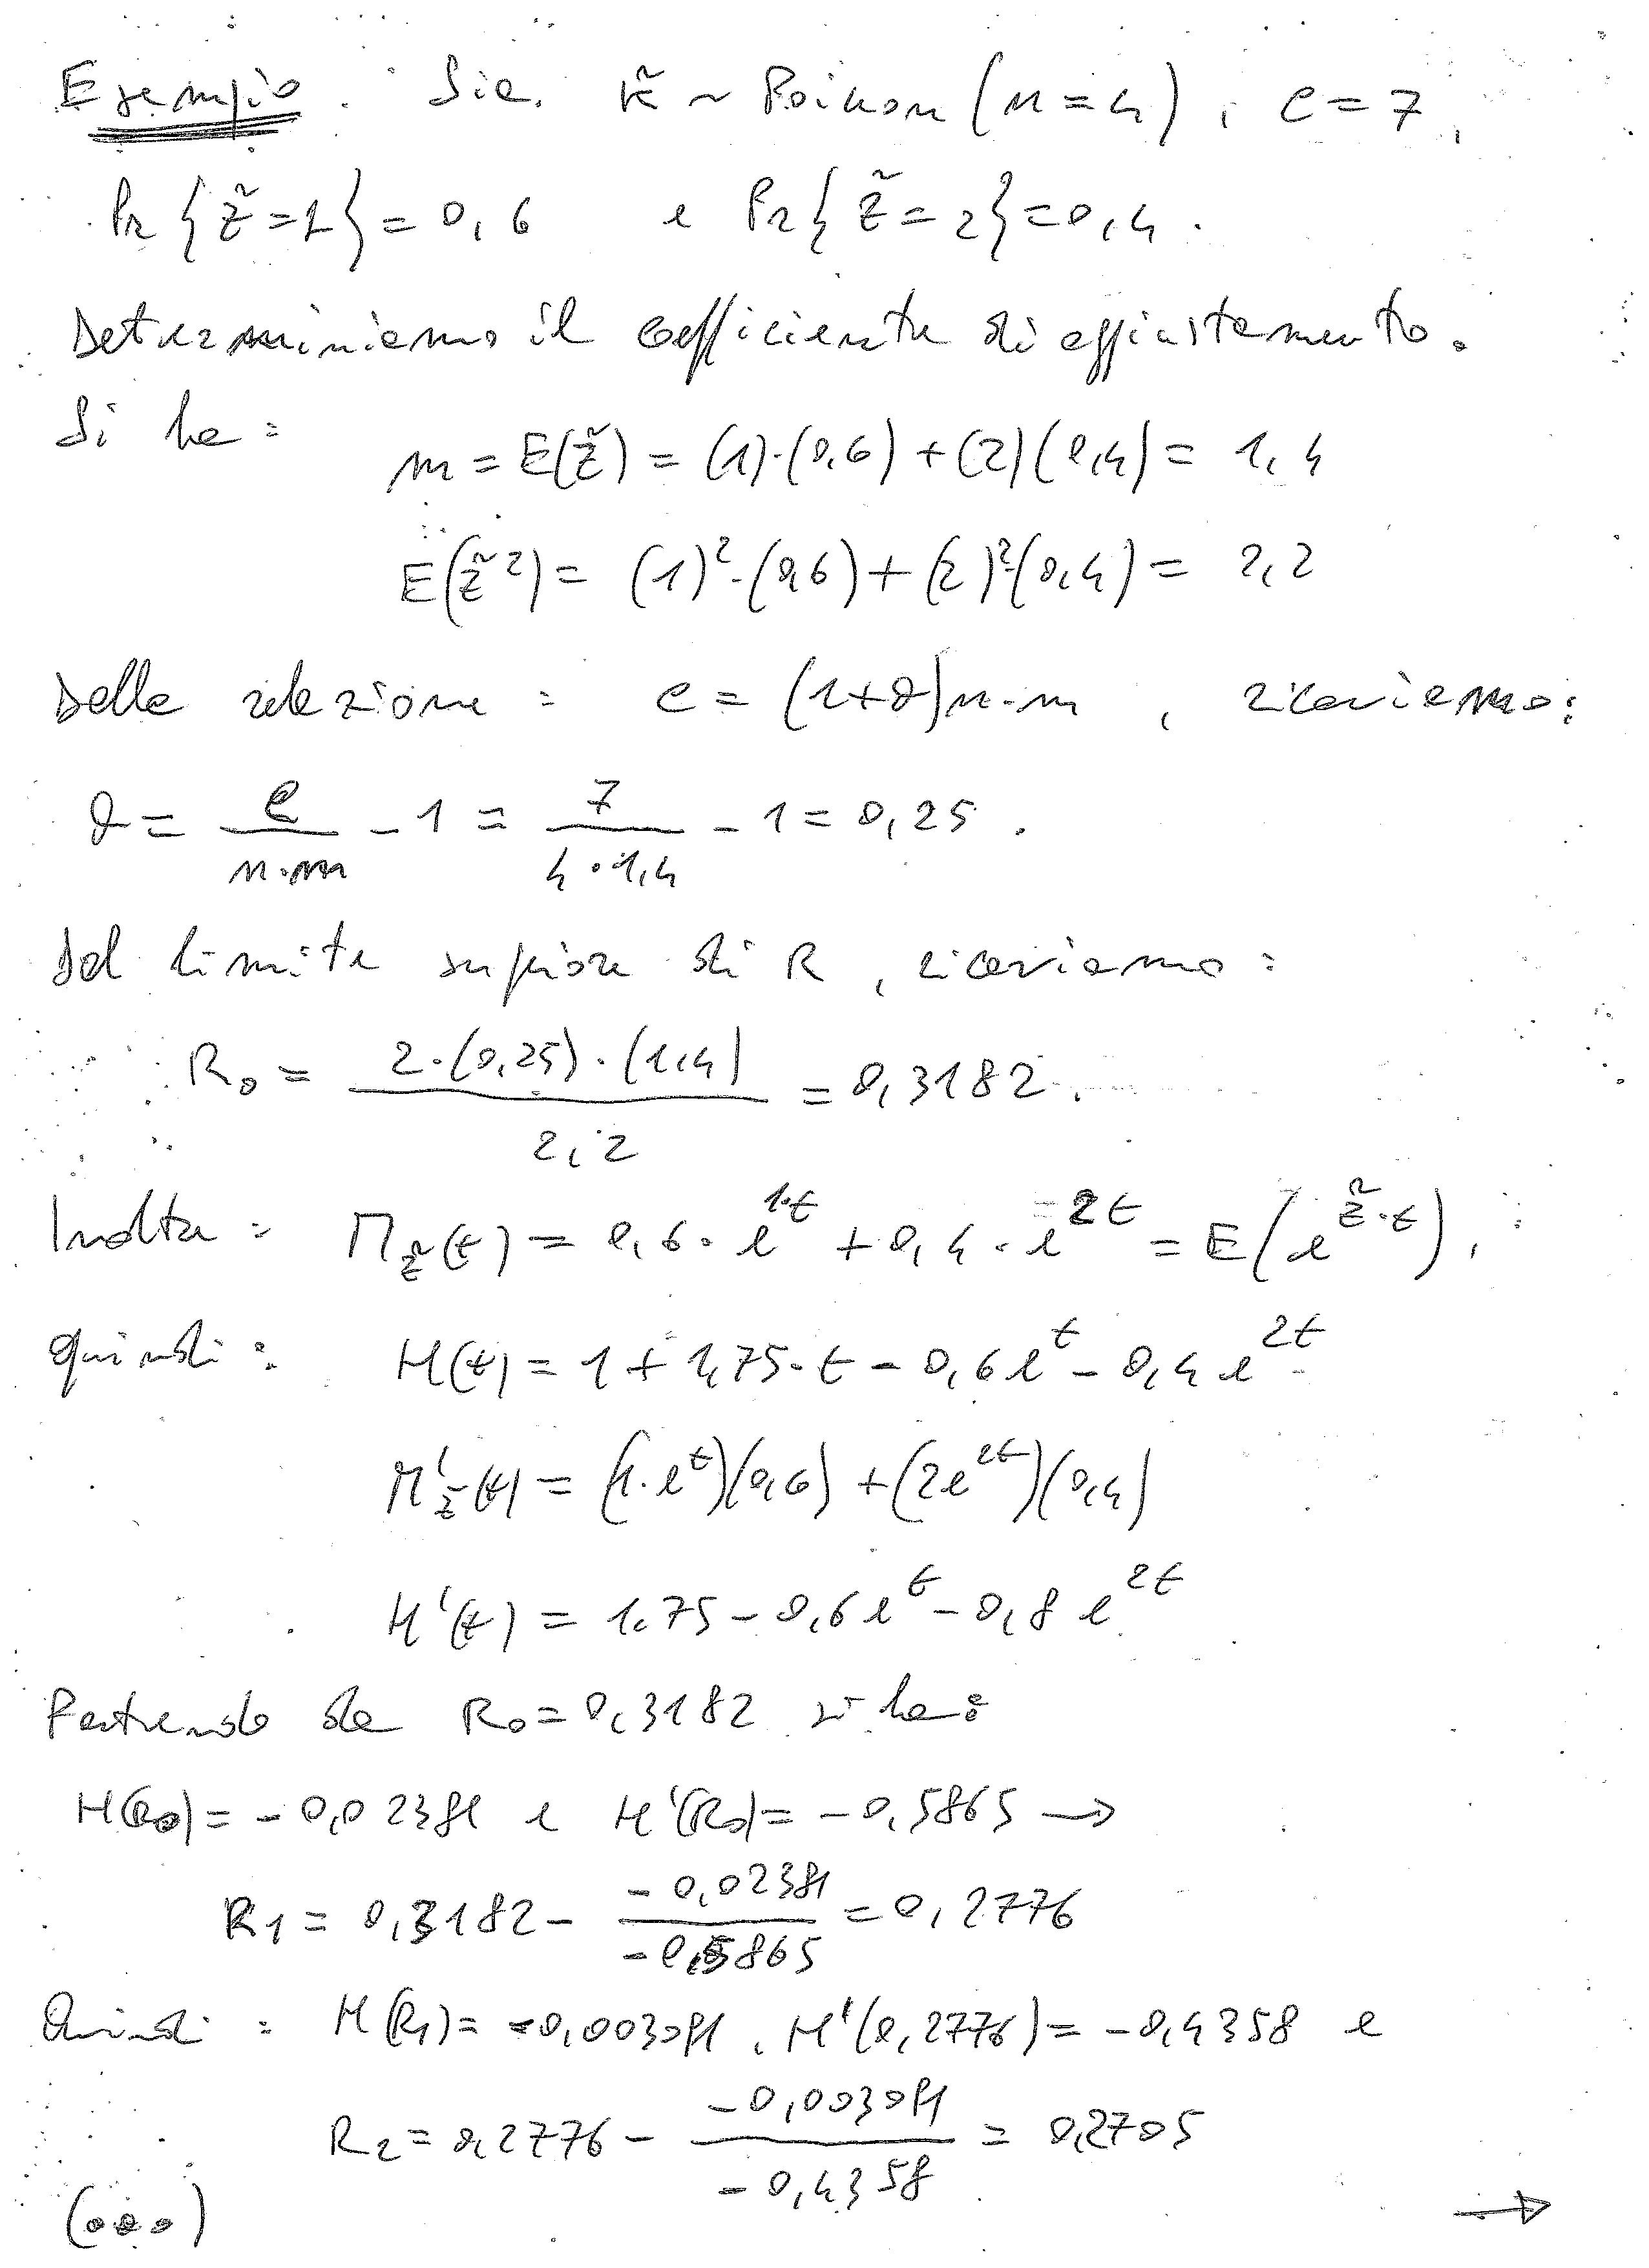 Esempio. Sia K̃ ~ Poisson (n=4), c=7,
Pr{Z̃=1}=0,6 e Pr{Z̃=2}=0,4.
Determiniamo il coefficiente di aggiustamento.
Si ha: m=E(Z̃)=(1)·(0,6)+(2)(0,4)=1,4
E(Z̃²)=(1)²·(0,6)+(2)²·(0,4)=2,2
Dalla relazione: c=(1+θ)n·m, ricaviamo:
θ = c/(n·m) - 1 = 7/(4·1,4) - 1 = 0,25.
Dal limite supeiore di R, ricaviamo:
R₀ = 2·(0,25)·(1,4)/2,2 = 0,3182.
Inoltre: M_Z̃(t) = 0,6·e^{1·t} + 0,4·e^{2t} = E(e^{Z̃·t}),
quindi: H(t) = 1 + 1,75·t - 0,6e^t - 0,4e^{2t}
M'_Z̃(t) = (1·e^t)(0,6) + (2e^{2t})(0,4)
H'(t) = 1.75 - 0,6e^t - 0,8e^{2t}
Partendo da R₀=0,3182 si ha:
H(R₀) = -0,02381 e H'(R₀) = -0,5865 →
R₁ = 0,3182 - (-0,02381)/(-0,5865) = 0,2776
Quindi: H(R₁) = -0,003091, H'(0,2776) = -0,4358 e
R₂ = 0,2776 - (-0,003091)/(-0,4358) = 0,2705
(...) →